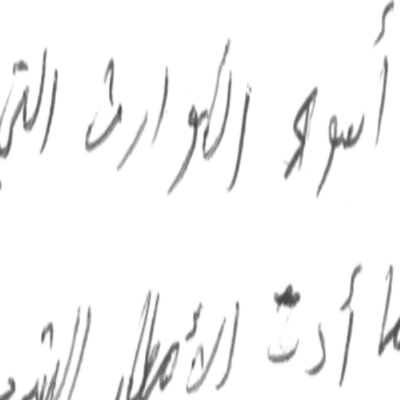 أسوء الكوارث التي
ما أدت الأمطار